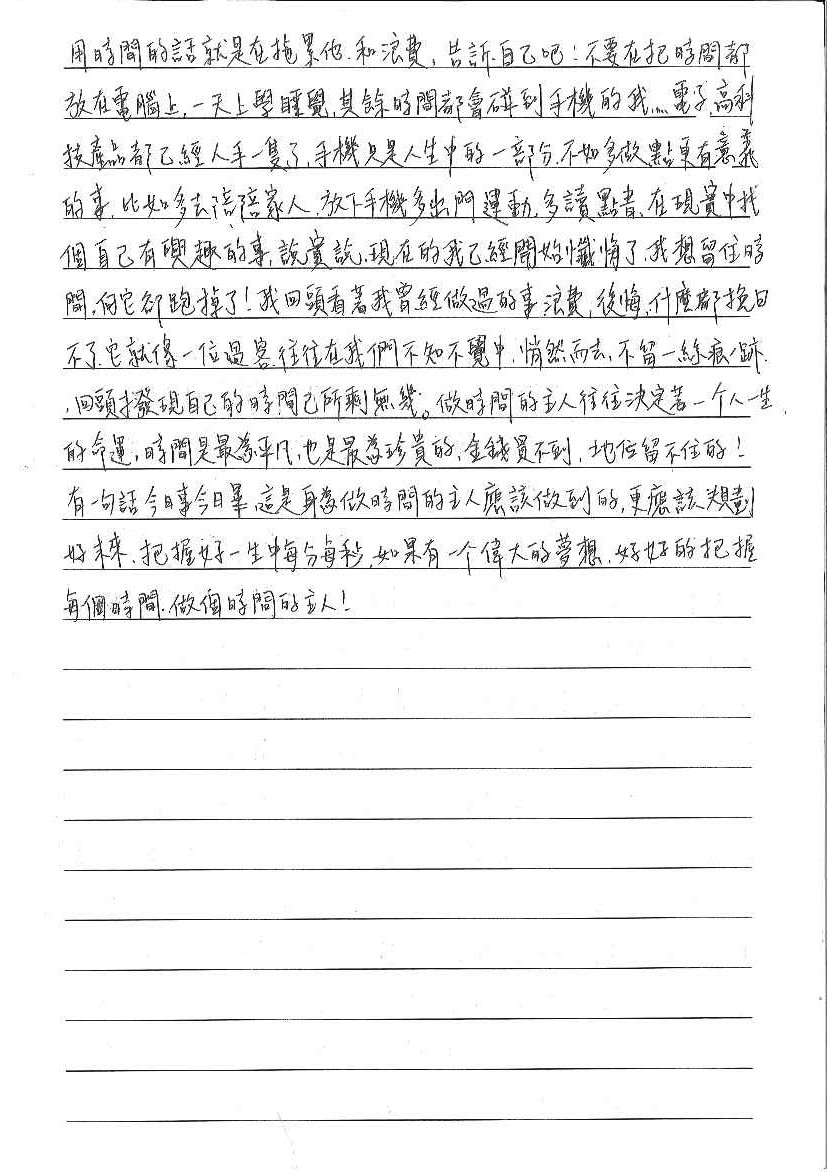 用時間的話就是在拖累他.和浪費,告訴自己吧!不要在把時間都
放在電腦上,一天上學睡覺,其餘時間都會碰到手機的我…電子,高科
技產品都已經人手一隻了,手機只是人生中的一部分.不如多做點更有意義
的事,比如多去陪陪家人.放下手機多出門運動.多讀點書,在現實中找
個自己有興趣的事,說實說.現在的我已經開始懺悔了.我想留住時
間,但它卻跑掉了!我回頭看著我曾經做過的事浪費,後悔,什麼都挽回
不了.它就像一位過客.往往在我們不知不覺中.悄然而去,不留一絲痕跡.
,回頭才發現自己的時間已所剩無幾。做時間的主人往往決定著一个人一生
的命運,時間是最為平凡,也是最為珍貴的,金錢買不到,地位留不住的!
有一句話今日事今日畢,這是身為做時間的主人應該做到的,更應該規劃
好未來.把握好一生中每分每秒.如果有一个偉大的夢想.好好的把握
每個時間.做個時間的主人!